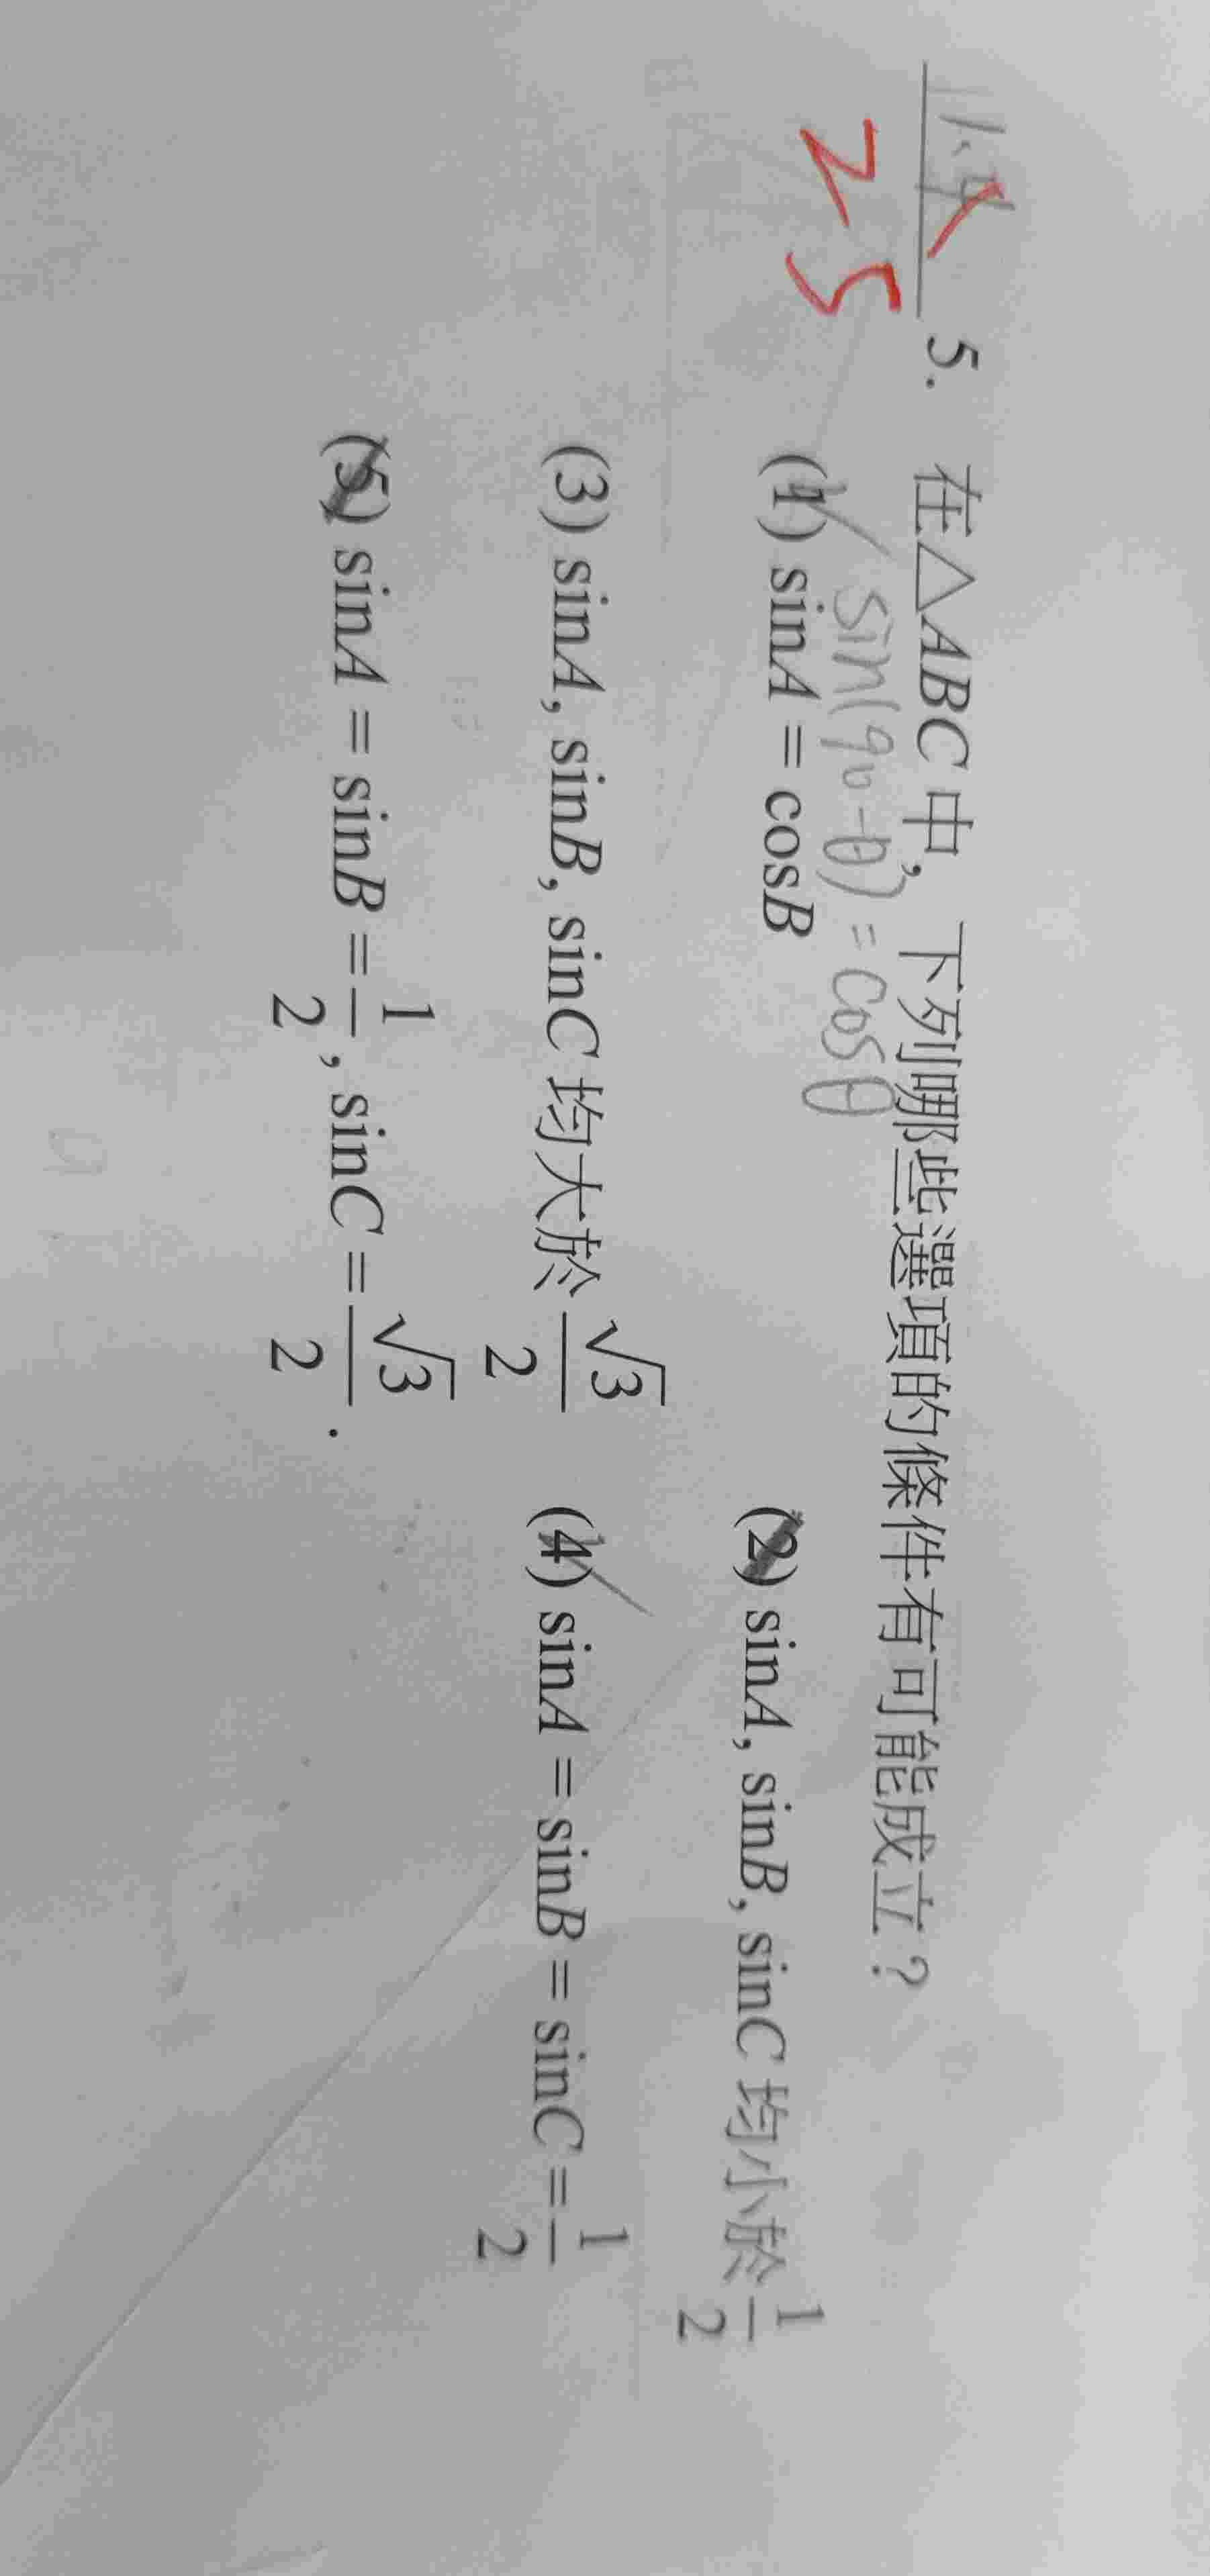 1、4
25
5. 在△ABC中, 下列哪些選項的條件有可能成立？
sin(90-θ)=cosθ
(1) sinA = cosB (2) sinA, sinB, sinC 均小於 1/2
(3) sinA, sinB, sinC 均大於 √3/2 (4) sinA = sinB = sinC = 1/2
(5) sinA = sinB = 1/2, sinC = √3/2.